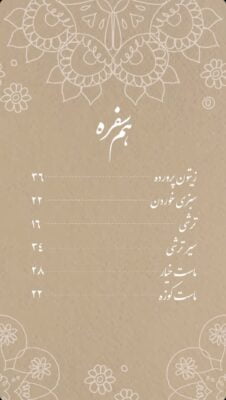 هم سفره
زیتون پرورده ۳۶
سبزی خوردن ۲۲
ترشی ۱۶
سیر ترشی ۳۴
ماست خیار ۲۸
ماست کوزه ۲۲